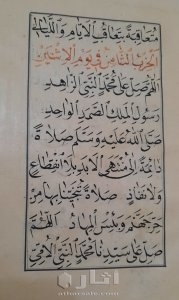 مُتَعَاقِبَةً بِتَعَاقُبِ الْأَيَّامِ وَاللَّيَالِي
الْحِزْبُ الثَّامِنُ فِي يَوْمِ الْإِثْنَيْنِ
اللَّهُمَّ صَلِّ عَلَى مُحَمَّدٍ النَّبِيِّ الزَّاهِدِ
رَسُولِ الْمَلِكِ الصَّمَدِ الْوَاحِدِ
صَلَّى اللَّهُ عَلَيْهِ وَسَلَّمَ صَلَاةً
دَائِمَةً إِلَى مُنْتَهَى الْأَبَدِ بِلَا انْقِطَاعٍ
وَلَا نَفَادٍ صَلَاةً تُنْجِينَا بِهَا مِنْ
حَرِّ جَهَنَّمَ وَبِئْسَ الْمِهَادُ اللَّهُمَّ
صَلِّ عَلَى سَيِّدِنَا مُحَمَّدٍ النَّبِيِّ الْأُمِّيِّ